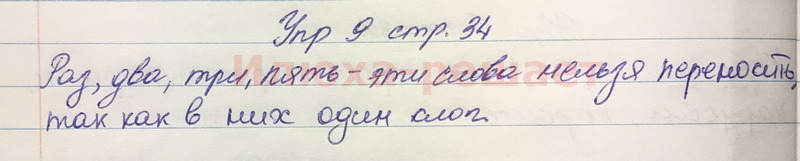 Упр 9 стр. 34
Раз, два, три, пять - эти слова нельзя переносить,
так как в них один слог.